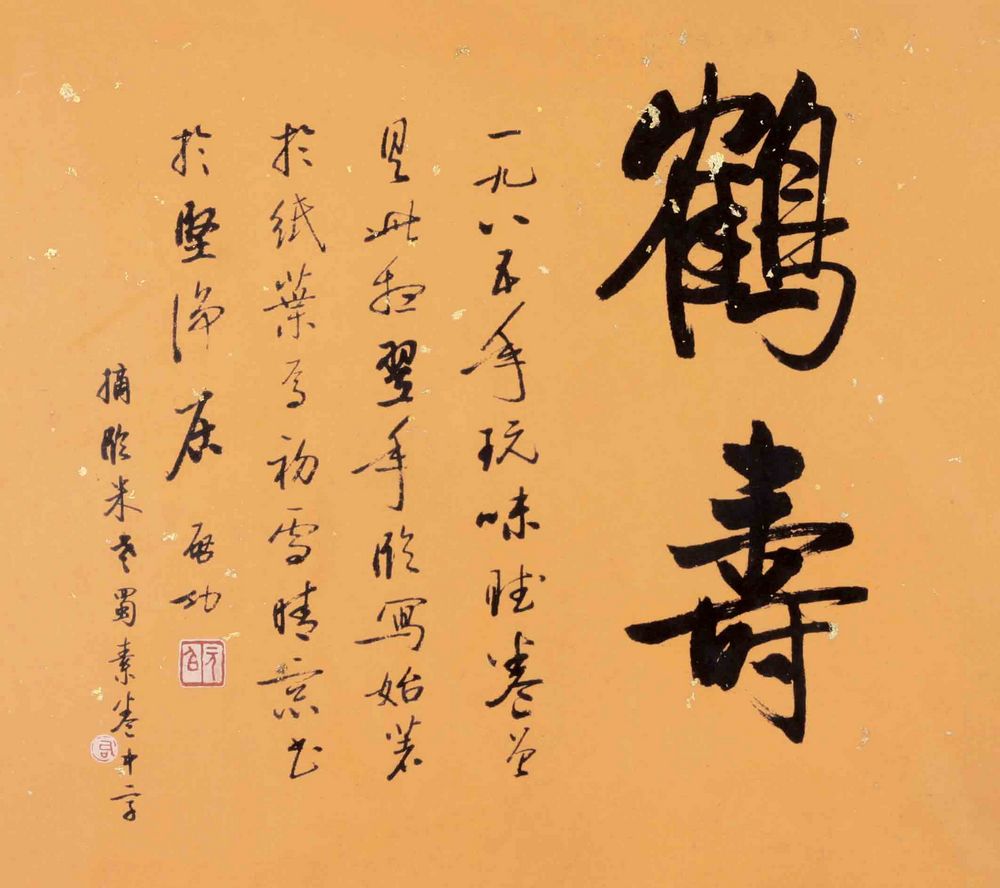 鶴壽
一九八五年玩味卷曾
具此想翌年臨寫始落
於紙葉焉初雪晴窗書
於堅淨居 啟功
元白
摘臨米老蜀素卷中字